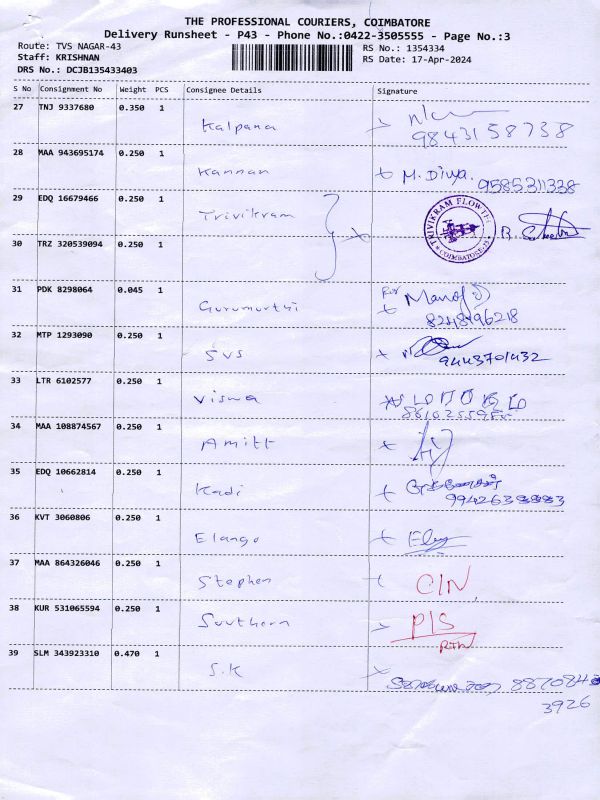 THE PROFESSIONAL COURIERS, COIMBATORE
Delivery Runsheet - P43 - Phone No.:0422-3505555 - Page No.:3
Route: TVS NAGAR-43
RS No.: 1354334
Staff: KRISHNAN
RS Date: 17-Apr-2024
DRS No.: DCJB135433403
S No Consignment No Weight PCS Consignee Details Signature
27 TNJ 9337680 0.350 1 Kalpana 9843158738
28 MAA 943695174 0.250 1 Kannan M. Divya. 9585311338
29 EDQ 16679466 0.250 1 Trivikram TRIVIKRAM FLOWTECH COIMBATORE
30 TRZ 320539094 0.250 1
31 PDK 8298064 0.045 1 Gurumurthi Manoj
32 MTP 1293090 0.250 1 SVS 9443701432
33 LTR 6102577 0.250 1 Viswa
34 MAA 108874567 0.250 1 Amitt
35 EDQ 10662814 0.250 1 Kadi
36 KVT 3060806 0.250 1 Elango
37 MAA 864326046 0.250 1 Stephen CIN
38 KUR 531065594 0.250 1 Southern P/S
RTN
39 SLM 343923310 0.470 1 S.K 887084
3926